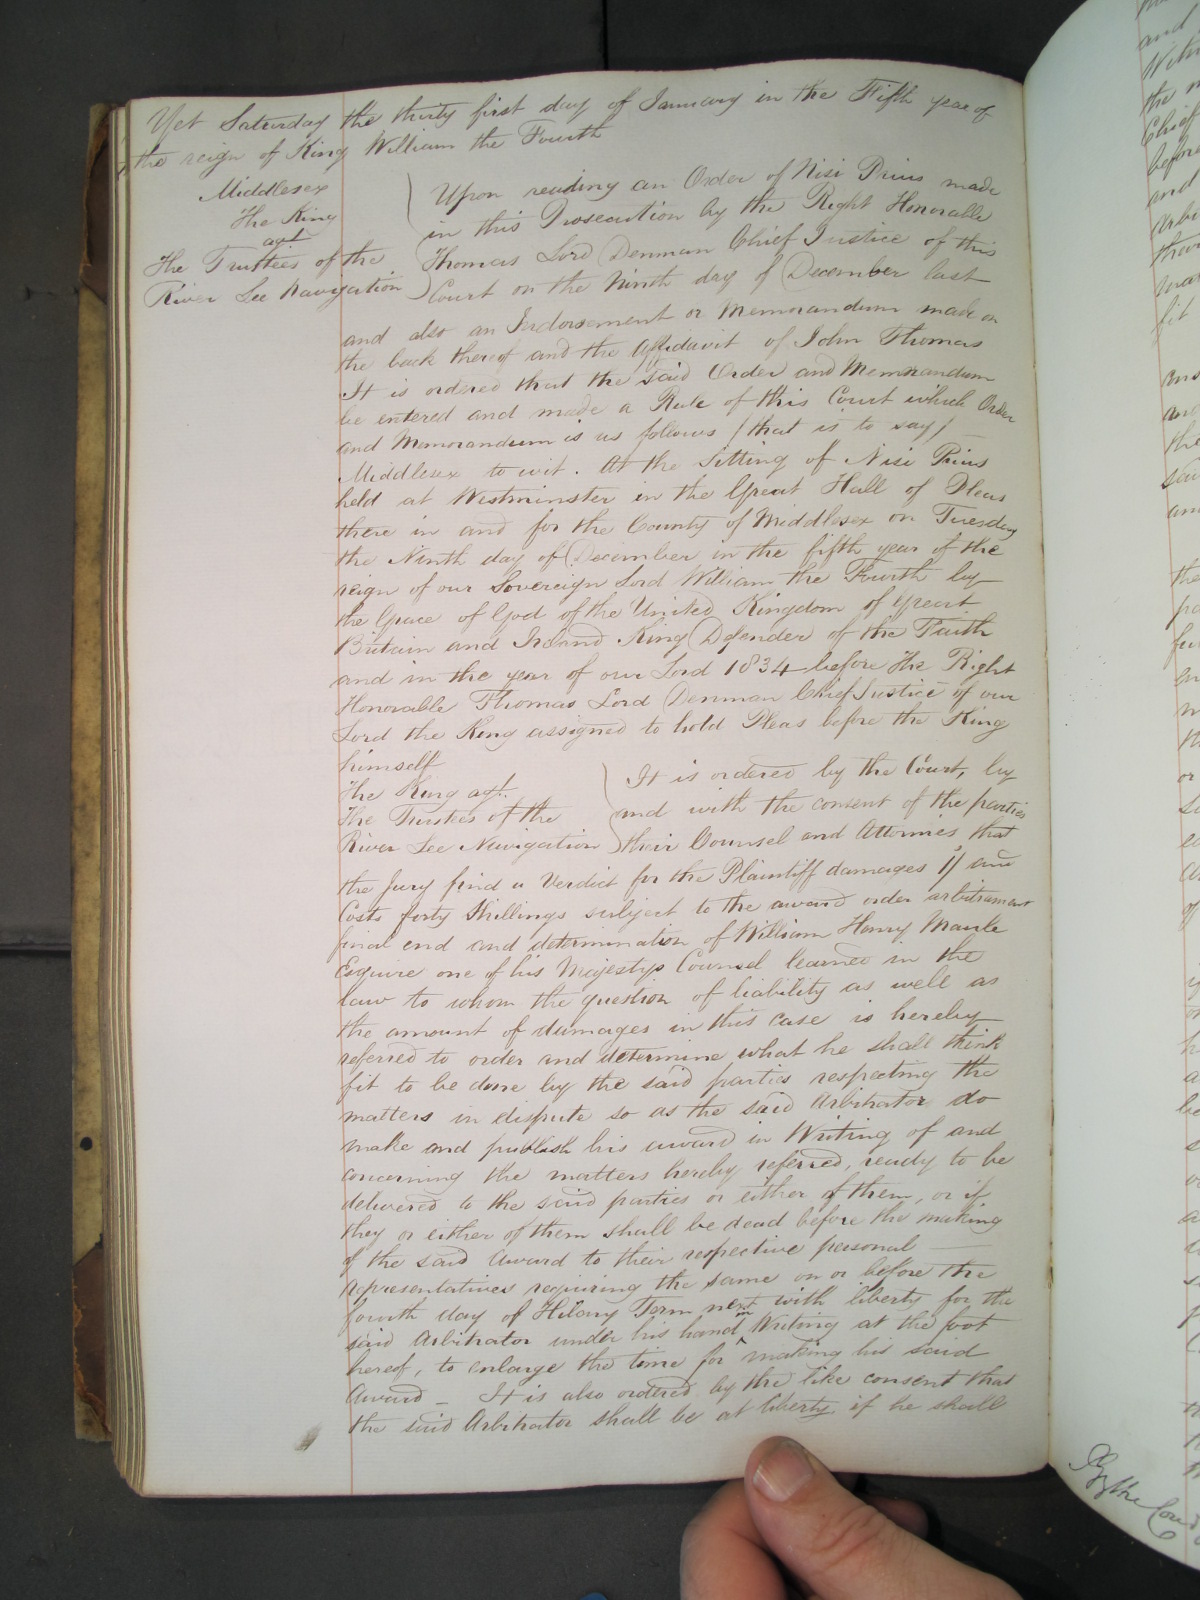 Yet Saturday the thirty first day of January in the Fifth year of
the reign of King William the Fourth
Middlesex
The King
agt
The Trustees of the
River Lee Navigation
Upon reading an Order of Nisi Prius made
in this Prosecution by the Right Honorable
Thomas Lord Denman Chief Justice of this
Court on the Ninth day of December last
and also an Indorsement or Memorandum made on
the back thereof and the Affidavit of John Thomas
It is ordered that the said Order and Memorandum
be entered and made a Rule of this Court which Order
and Memorandum is as follows (that is to say)
Middlesex to wit. At the Sitting of Nisi Prius
held at Westminster in the Great Hall of Pleas
there in and for the County of Middlesex on Tuesday
the Ninth day of December in the fifth year of the
reign of our Sovereign Lord William the Fourth by
the Grace of God of the United Kingdom of Great
Britain and Ireland King Defender of the Faith
and in the year of our Lord 1834 before The Right
Honorable Thomas Lord Denman Chief Justice of our
Lord the King assigned to hold Pleas before the King
himself
The King agt.
The Trustees of the
River Lee Navigation
It is ordered by the Court, by
and with the consent of the parties
their Counsel and Attornies that
the Jury find a Verdict for the Plaintiff damages 1/ and
Costs forty Shillings subject to the award order arbitrament
final end and determination of William Henry Maule
Esquire one of his Majestys Counsel learned in the
law to whom the question of liability as well as
the amount of damages in this case is hereby
referred to order and determine what he shall think
fit to be done by the said parties respecting the
matters in dispute so as the said Arbitrator do
make and publish his award in Writing of and
concerning the matters hereby referred, ready to be
delivered to the said parties or either of them, or if
they or either of them shall be dead before the making
of the said Award to their respective personal
representatives requiring the same on or before the
fourth day of Hilary Term next with liberty for the
said Arbitrator under his hand in Writing at the foot
hereof, to enlarge the time for making his said
Award – It is also ordered by the like consent that
the said Arbitrator shall be at liberty if he shall